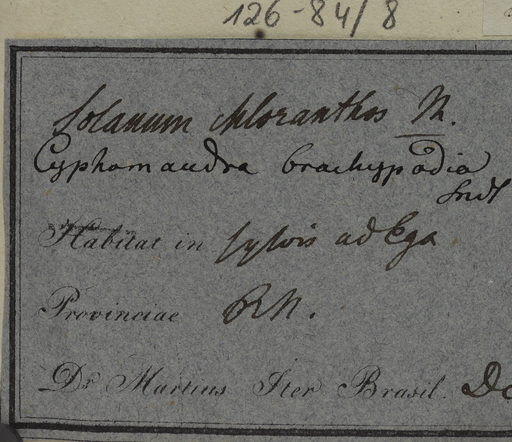 126-84/8
Solanum chloranthos M.
Cyphomandra brachypodia
Sndt
Habitat in sylvis ad Ega
Provinciae R.N.
Dr Martius Iter Brasil. De